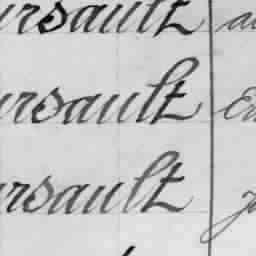 ursault
ursault
ursault